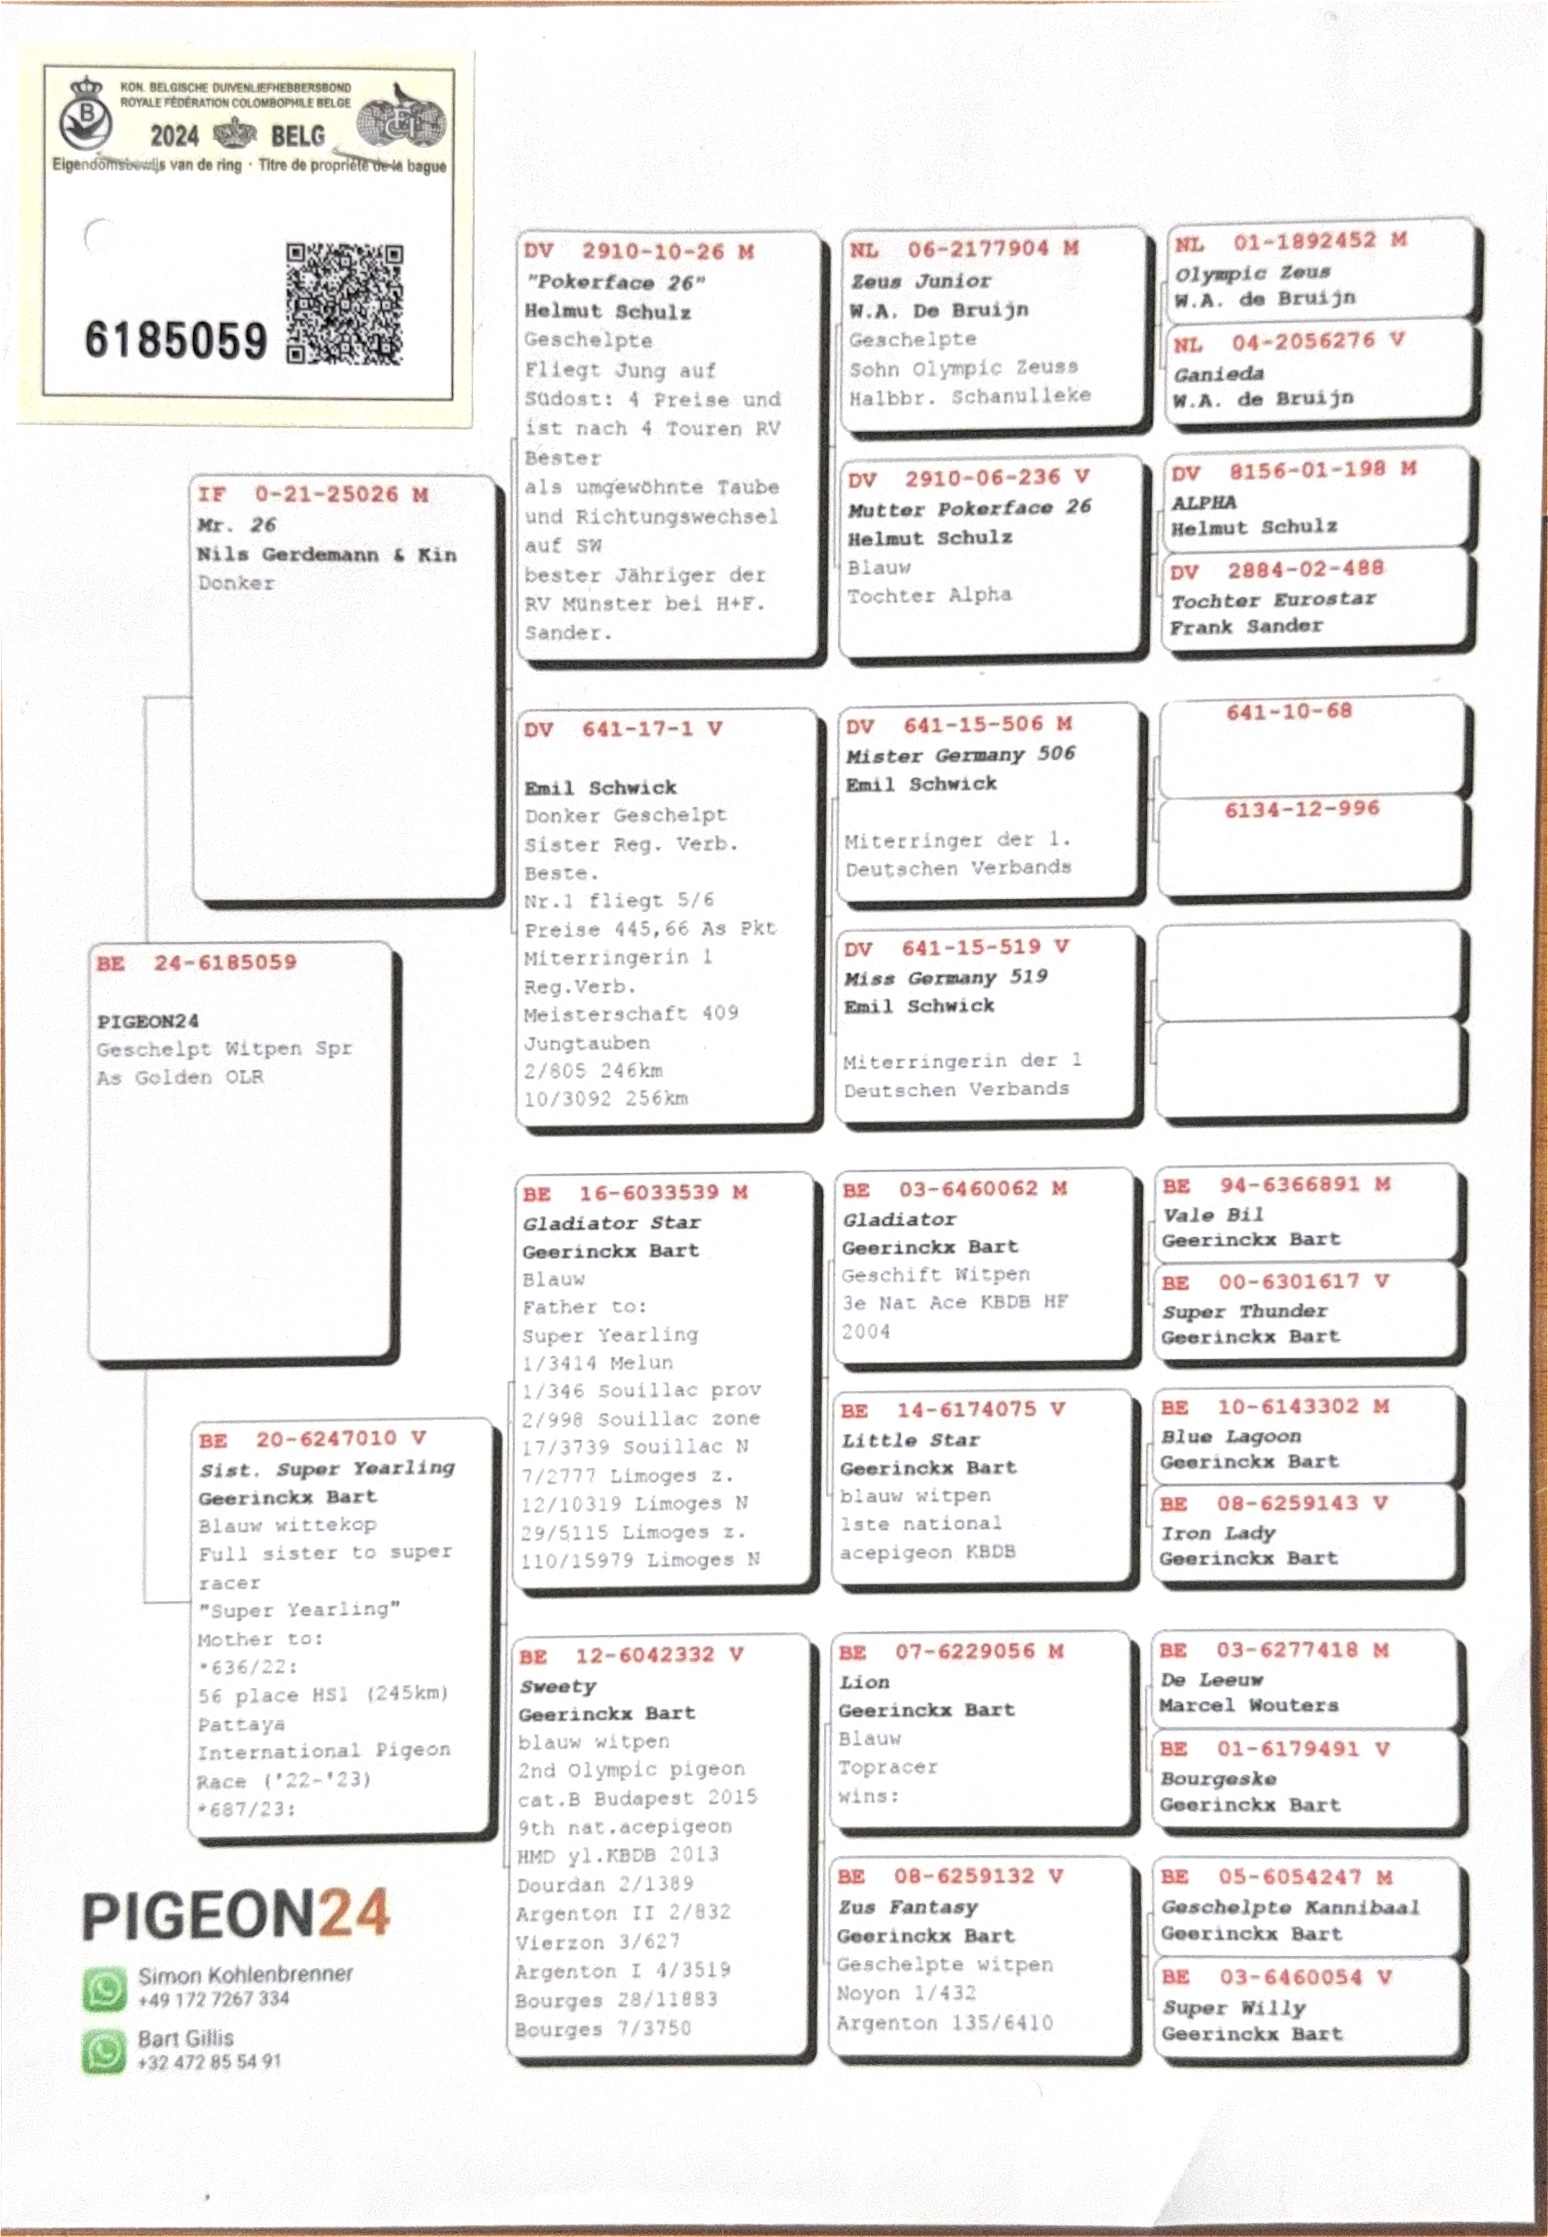 KON. BELGISCHE DUIVENLIEFHEBBERSBOND
ROYALE FÉDÉRATION COLOMBOPHILE BELGE
B
FCI
2024 BELG
Eigendomsbewijs van de ring · Titre de propriété de la bague
6185059
BE 24-6185059
PIGEON24
Geschelpt Witpen Spr
As Golden OLR
IF 0-21-25026 M
Mr. 26
Nils Gerdemann & Kin
Donker
BE 20-6247010 V
Sist. Super Yearling
Geerinckx Bart
Blauw wittekop
Full sister to super
racer
"Super Yearling"
Mother to:
*636/22:
56 place HS1 (245km)
Pattaya
International Pigeon
Race ('22-'23)
*687/23:
DV 2910-10-26 M
"Pokerface 26"
Helmut Schulz
Geschelpte
Fliegt Jung auf
Südost: 4 Preise und
ist nach 4 Touren RV
Bester
als umgewöhnte Taube
und Richtungswechsel
auf SW
bester Jähriger der
RV Münster bei H+F.
Sander.
DV 641-17-1 V
Emil Schwick
Donker Geschelpt
Sister Reg. Verb.
Beste.
Nr.1 fliegt 5/6
Preise 445,66 As Pkt
Miterringerin 1
Reg.Verb.
Meisterschaft 409
Jungtauben
2/805 246km
10/3092 256km
BE 16-6033539 M
Gladiator Star
Geerinckx Bart
Blauw
Father to:
Super Yearling
1/3414 Melun
1/346 Souillac prov
2/998 Souillac zone
17/3739 Souillac N
7/2777 Limoges z.
12/10319 Limoges N
29/5115 Limoges z.
110/15979 Limoges N
BE 12-6042332 V
Sweety
Geerinckx Bart
blauw witpen
2nd Olympic pigeon
cat.B Budapest 2015
9th nat.acepigeon
HMD yl.KBDB 2013
Dourdan 2/1389
Argenton II 2/832
Vierzon 3/627
Argenton I 4/3519
Bourges 28/11883
Bourges 7/3750
NL 06-2177904 M
Zeus Junior
W.A. De Bruijn
Geschelpte
Sohn Olympic Zeuss
Halbbr. Schanulleke
DV 2910-06-236 V
Mutter Pokerface 26
Helmut Schulz
Blauw
Tochter Alpha
DV 641-15-506 M
Mister Germany 506
Emil Schwick
Miterringer der 1.
Deutschen Verbands
DV 641-15-519 V
Miss Germany 519
Emil Schwick
Miterringerin der 1
Deutschen Verbands
BE 03-6460062 M
Gladiator
Geerinckx Bart
Geschift Witpen
3e Nat Ace KBDB HF
2004
BE 14-6174075 V
Little Star
Geerinckx Bart
blauw witpen
1ste national
acepigeon KBDB
BE 07-6229056 M
Lion
Geerinckx Bart
Blauw
Topracer
wins:
BE 08-6259132 V
Zus Fantasy
Geerinckx Bart
Geschelpte witpen
Noyon 1/432
Argenton 135/6410
NL 01-1892452 M
Olympic Zeus
W.A. de Bruijn
NL 04-2056276 V
Ganieda
W.A. de Bruijn
DV 8156-01-198 M
ALPHA
Helmut Schulz
DV 2884-02-488
Tochter Eurostar
Frank Sander
641-10-68
6134-12-996
BE 94-6366891 M
Vale Bil
Geerinckx Bart
BE 00-6301617 V
Super Thunder
Geerinckx Bart
BE 10-6143302 M
Blue Lagoon
Geerinckx Bart
BE 08-6259143 V
Iron Lady
Geerinckx Bart
BE 03-6277418 M
De Leeuw
Marcel Wouters
BE 01-6179491 V
Bourgeske
Geerinckx Bart
BE 05-6054247 M
Geschelpte Kannibaal
Geerinckx Bart
BE 03-6460054 V
Super Willy
Geerinckx Bart
PIGEON24
Simon Kohlenbrenner
+49 172 7267 334
Bart Gillis
+32 472 85 54 91